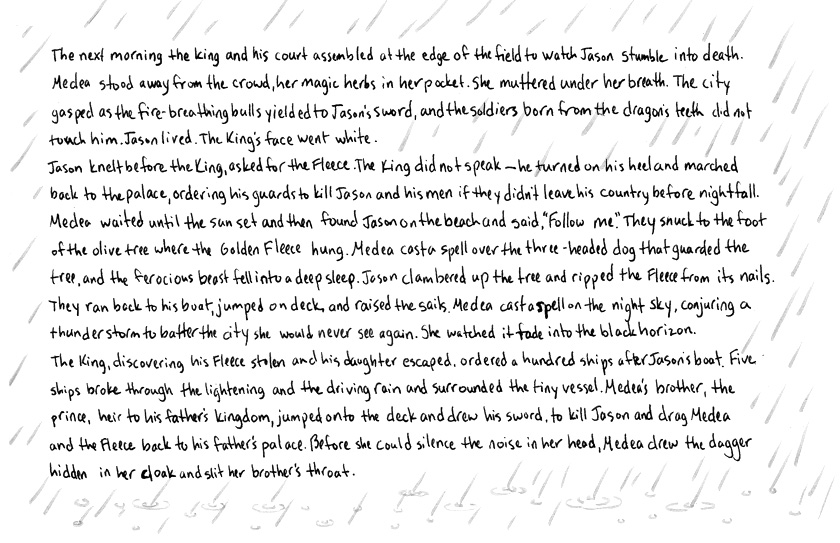 The next morning the king and his court assembled at the edge of the field to watch Jason stumble into death.
Medea stood away from the crowd, her magic herbs in her pocket. She muttered under her breath. The city
gasped as the fire-breathing bulls yielded to Jason's sword, and the soldiers born from the dragon's teeth did not
touch him. Jason lived. The King's face went white.
Jason knelt before the King, asked for the Fleece. The King did not speak — he turned on his heel and marched
back to the palace, ordering his guards to kill Jason and his men if they didn't leave his country before nightfall.
Medea waited until the sun set and then found Jason on the beach and said, "Follow me." They snuck to the foot
of the olive tree where the Golden Fleece hung. Medea cast a spell over the three-headed dog that guarded the
tree, and the ferocious beast fell into a deep sleep. Jason clambered up the tree and ripped the Fleece from its nails.
They ran back to his boat, jumped on deck, and raised the sails. Medea cast a spell on the night sky, conjuring a
thunderstorm to batter the city she would never see again. She watched it fade into the black horizon.
The King, discovering his Fleece stolen and his daughter escaped, ordered a hundred ships after Jason's boat. Five
ships broke through the lightening and the driving rain and surrounded the tiny vessel. Medea's brother, the
prince, heir to his father's kingdom, jumped onto the deck and drew his sword, to kill Jason and drag Medea
and the Fleece back to his father's palace. Before she could silence the noise in her head, Medea drew the dagger
hidden in her cloak and slit her brother's throat.